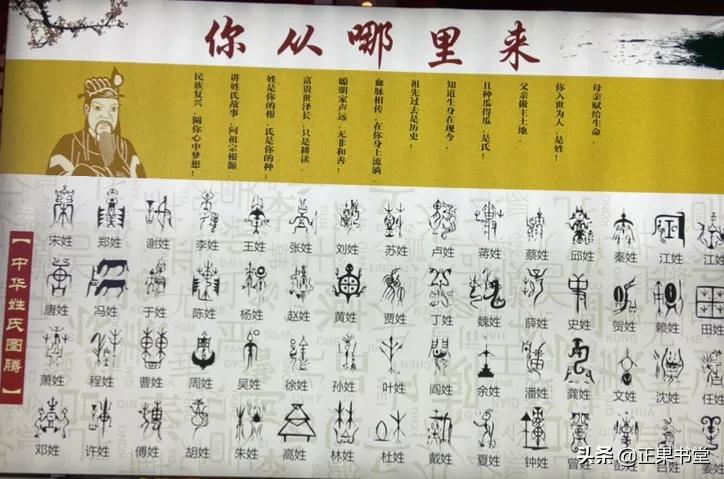 你从哪里来
母亲赋给生命，
你入世为人，是姓！
父亲做主土地，
且种瓜得瓜，是氏！
知道生身在现今，
祖先过去是历史！
血脉相传，在你身上流淌，
聪明家声远，无非和善；
富贵世泽长，只是耕读。
姓是你的根，氏是你的种；
讲姓氏故事，问祖宗根源
民族复兴，圆你心中梦想！
【中华姓氏图腾】
宋姓 郑姓 谢姓 李姓 王姓 张姓 刘姓 苏姓 卢姓 蒋姓 蔡姓 邱姓 秦姓 江姓
唐姓 冯姓 于姓 陈姓 杨姓 赵姓 黄姓 贾姓 丁姓 魏姓 薛姓 史姓 贺姓 赖姓 田姓
萧姓 程姓 曹姓 周姓 吴姓 徐姓 孙姓 叶姓 阎姓 余姓 潘姓 龚姓 文姓 沈姓 任姓
邓姓 许姓 傅姓 胡姓 朱姓 高姓 林姓 杜姓 戴姓 夏姓 钟姓 曾姓
头条 @正果书堂